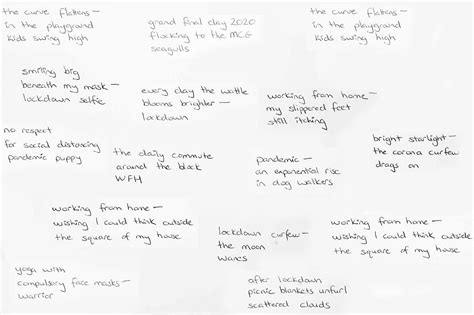 the curve flattens —
in the playground
kids swing high
grand final day 2020
flocking to the MCG
seagulls
the curve flattens —
in the playground
kids swing high
smiling big
beneath my mask —
lockdown selfie
every day the wattle
blooms brighter —
lockdown
working from home —
my slippered feet
still itching
no respect
for social distancing
pandemic puppy
the daily commute
around the block
WFH
pandemic —
an exponential rise
in dog walkers
bright starlight —
the corona curfew
drags on
working from home —
wishing I could think outside
the square of my house
lockdown curfew —
the moon
wanes
working from home —
wishing I could think outside
the square of my house
yoga with
compulsory face masks —
warrior
after lockdown
picnic blankets unfurl
scattered clouds